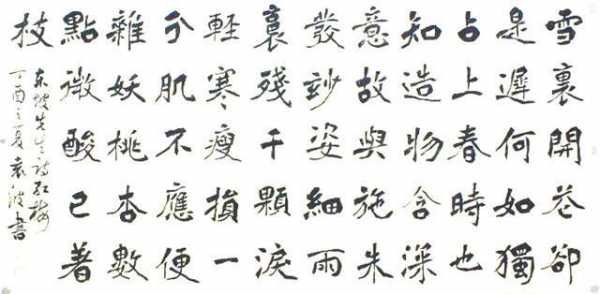 雪裏開花卻
是遲何如獨
占上春時也
知造物含深
意故與施朱
發妙姿細雨
裛殘千顆淚
輕寒瘦損一
分肌不應便
雜妖桃杏數
點微酸已著
枝
东坡先生詩紅梅
丁酉之夏袁波書